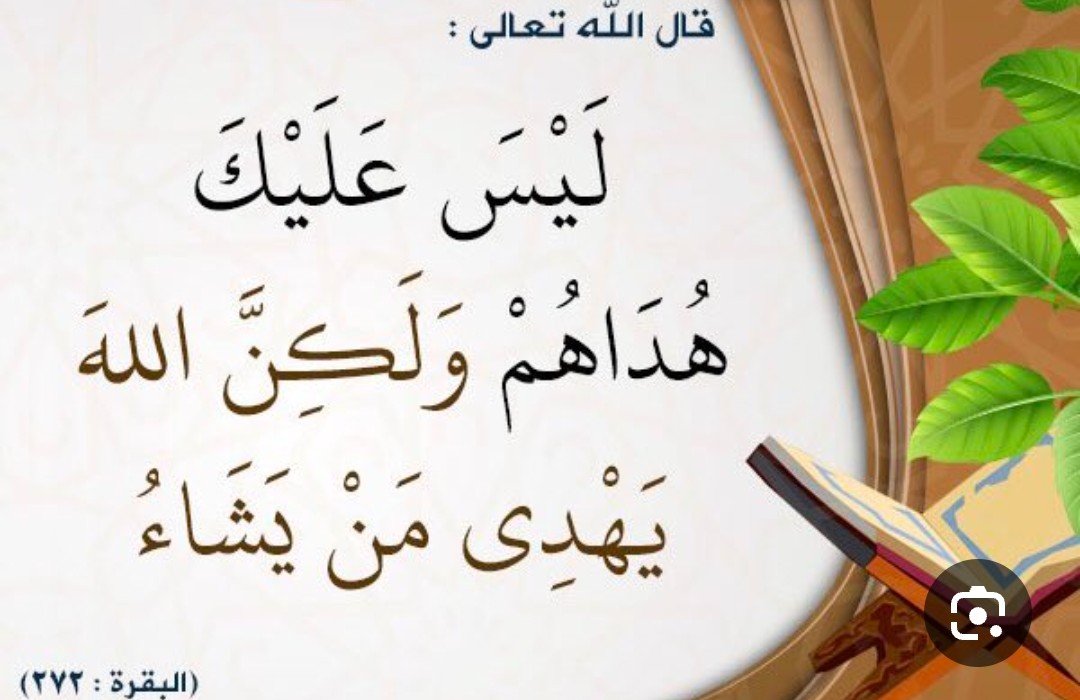 قال الله تعالى :
لَيْسَ عَلَيْكَ
هُدَاهُمْ وَلَكِنَّ اللهَ
يَهْدِى مَنْ يَشَاءُ
(البقرة : ٢٧٢)